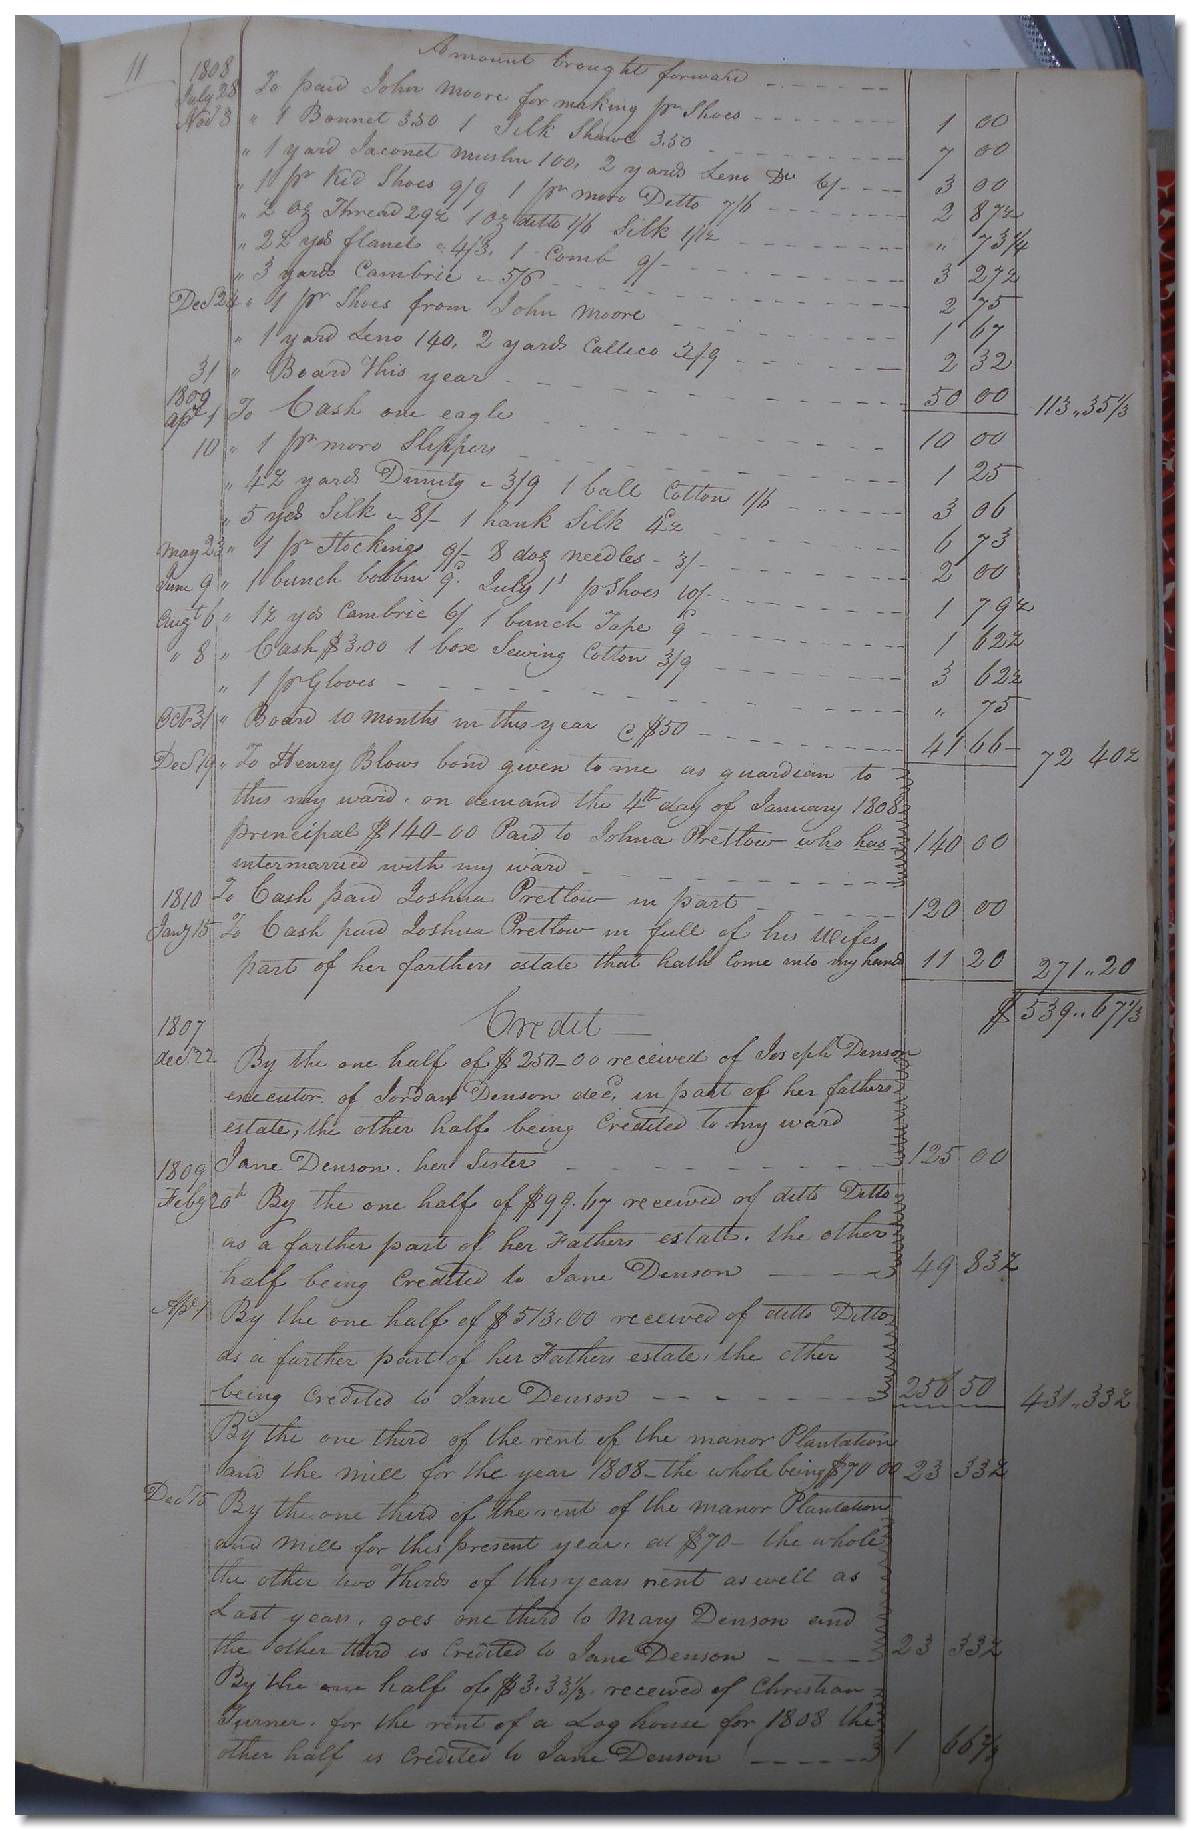 11
Amount brought forward
1808
July 28 To paid John Moore for making pr Shoes 1 00
Nov 3 " 1 Bonnet 3.50 1 Silk Shawl 3.50 7 00
" 1 yard Jaconet muslin 100, 2 yards Leno Do 6/- 3 00
" 1 pr Kid Shoes 9/9 1 pr moro Ditto 7/6 2 87½
" 2 oz Thread 29½ 1 oz ditto 1/6 Silk 1/1½ " 73¼
" 2½ yds flanel " 4/3, 1 Comb 9/- 3 27½
" 3 yards Cambric " 5/6 2 75
Decr 24 " 1 pr Shoes from John Moore 1 67
" 1 yard Leno 140, 2 yards Callico 2/9 2 32
31 " Board this year 50 00 113..35⅓
1809
Apr 1 To Cash one eagle 10 00
10 " 1 pr moro Slippers 1 25
" 4½ yards Dimity " 3/9 1 ball Cotton 1/6 3 06
" 5 yds Silk " 8/- 1 hank Silk 4d½ 6 73
May 23 " 1 pr Stockings 9/- 8 doz needles - 3/- 2 00
June 9 " 1 bunch bobbin 9d July 1 1 pr Shoes 10/- 1 79½
Augt 6 " 1½ yds Cambric 6/ 1 bunch Tape 9d 1 62½
" 8 " Cash $3.00 1 box Sewing Cotton 3/9 3 62½
" 1 pr Gloves " 75
Oct 31 " Board 10 months in this year @ $50 41 66 72 40½
Decr 19 " To Henry Blows bond given to me as guardian to
this my ward, on demand the 4th day of January 1808
principal $140-00 Paid to Joshua Pretlow who has 140 00
intermarried with my ward
1810 To Cash paid Joshua Pretlow in part 120 00
Jany 15 To Cash paid Joshua Pretlow in full of his Wifes
part of her farthers estate that hath Come into my hands 11 20 271..20
$ 539..67⅓
Credit
1807
decr 22 By the one half of $250-00 received of Joseph Denson
executor of Jordan Denson decd, in part of her fathers
estate, the other half being Credited to my ward
Jane Denson, her Sister 125 00
1809
Feby 20th By the one half of $99.67 received of ditto Ditto
as a farther part of her Fathers estate, the other
half being Credited to Jane Denson 49 83½
Apr 1 By the one half of $513.00 received of ditto Ditto
as a farther part of her Fathers estate, the other
being Credited to Jane Denson 256 50 431..33½
By the one third of the rent of the manor Plantation
and the mill for the year 1808 - the whole being $70 00 23 33½
Decr 15 By the one third of the rent of the manor Plantation
and mill for this present year, at $70 - the whole
the other two Thirds of this years rent as well as
Last years, goes one third to Mary Denson and
the other third is Credited to Jane Denson 23 33½
By the one half of $3.33⅓ received of Christian
Turner, for the rent of a Log house for 1808 the
other half is Credited to Jane Denson 1 66⅔